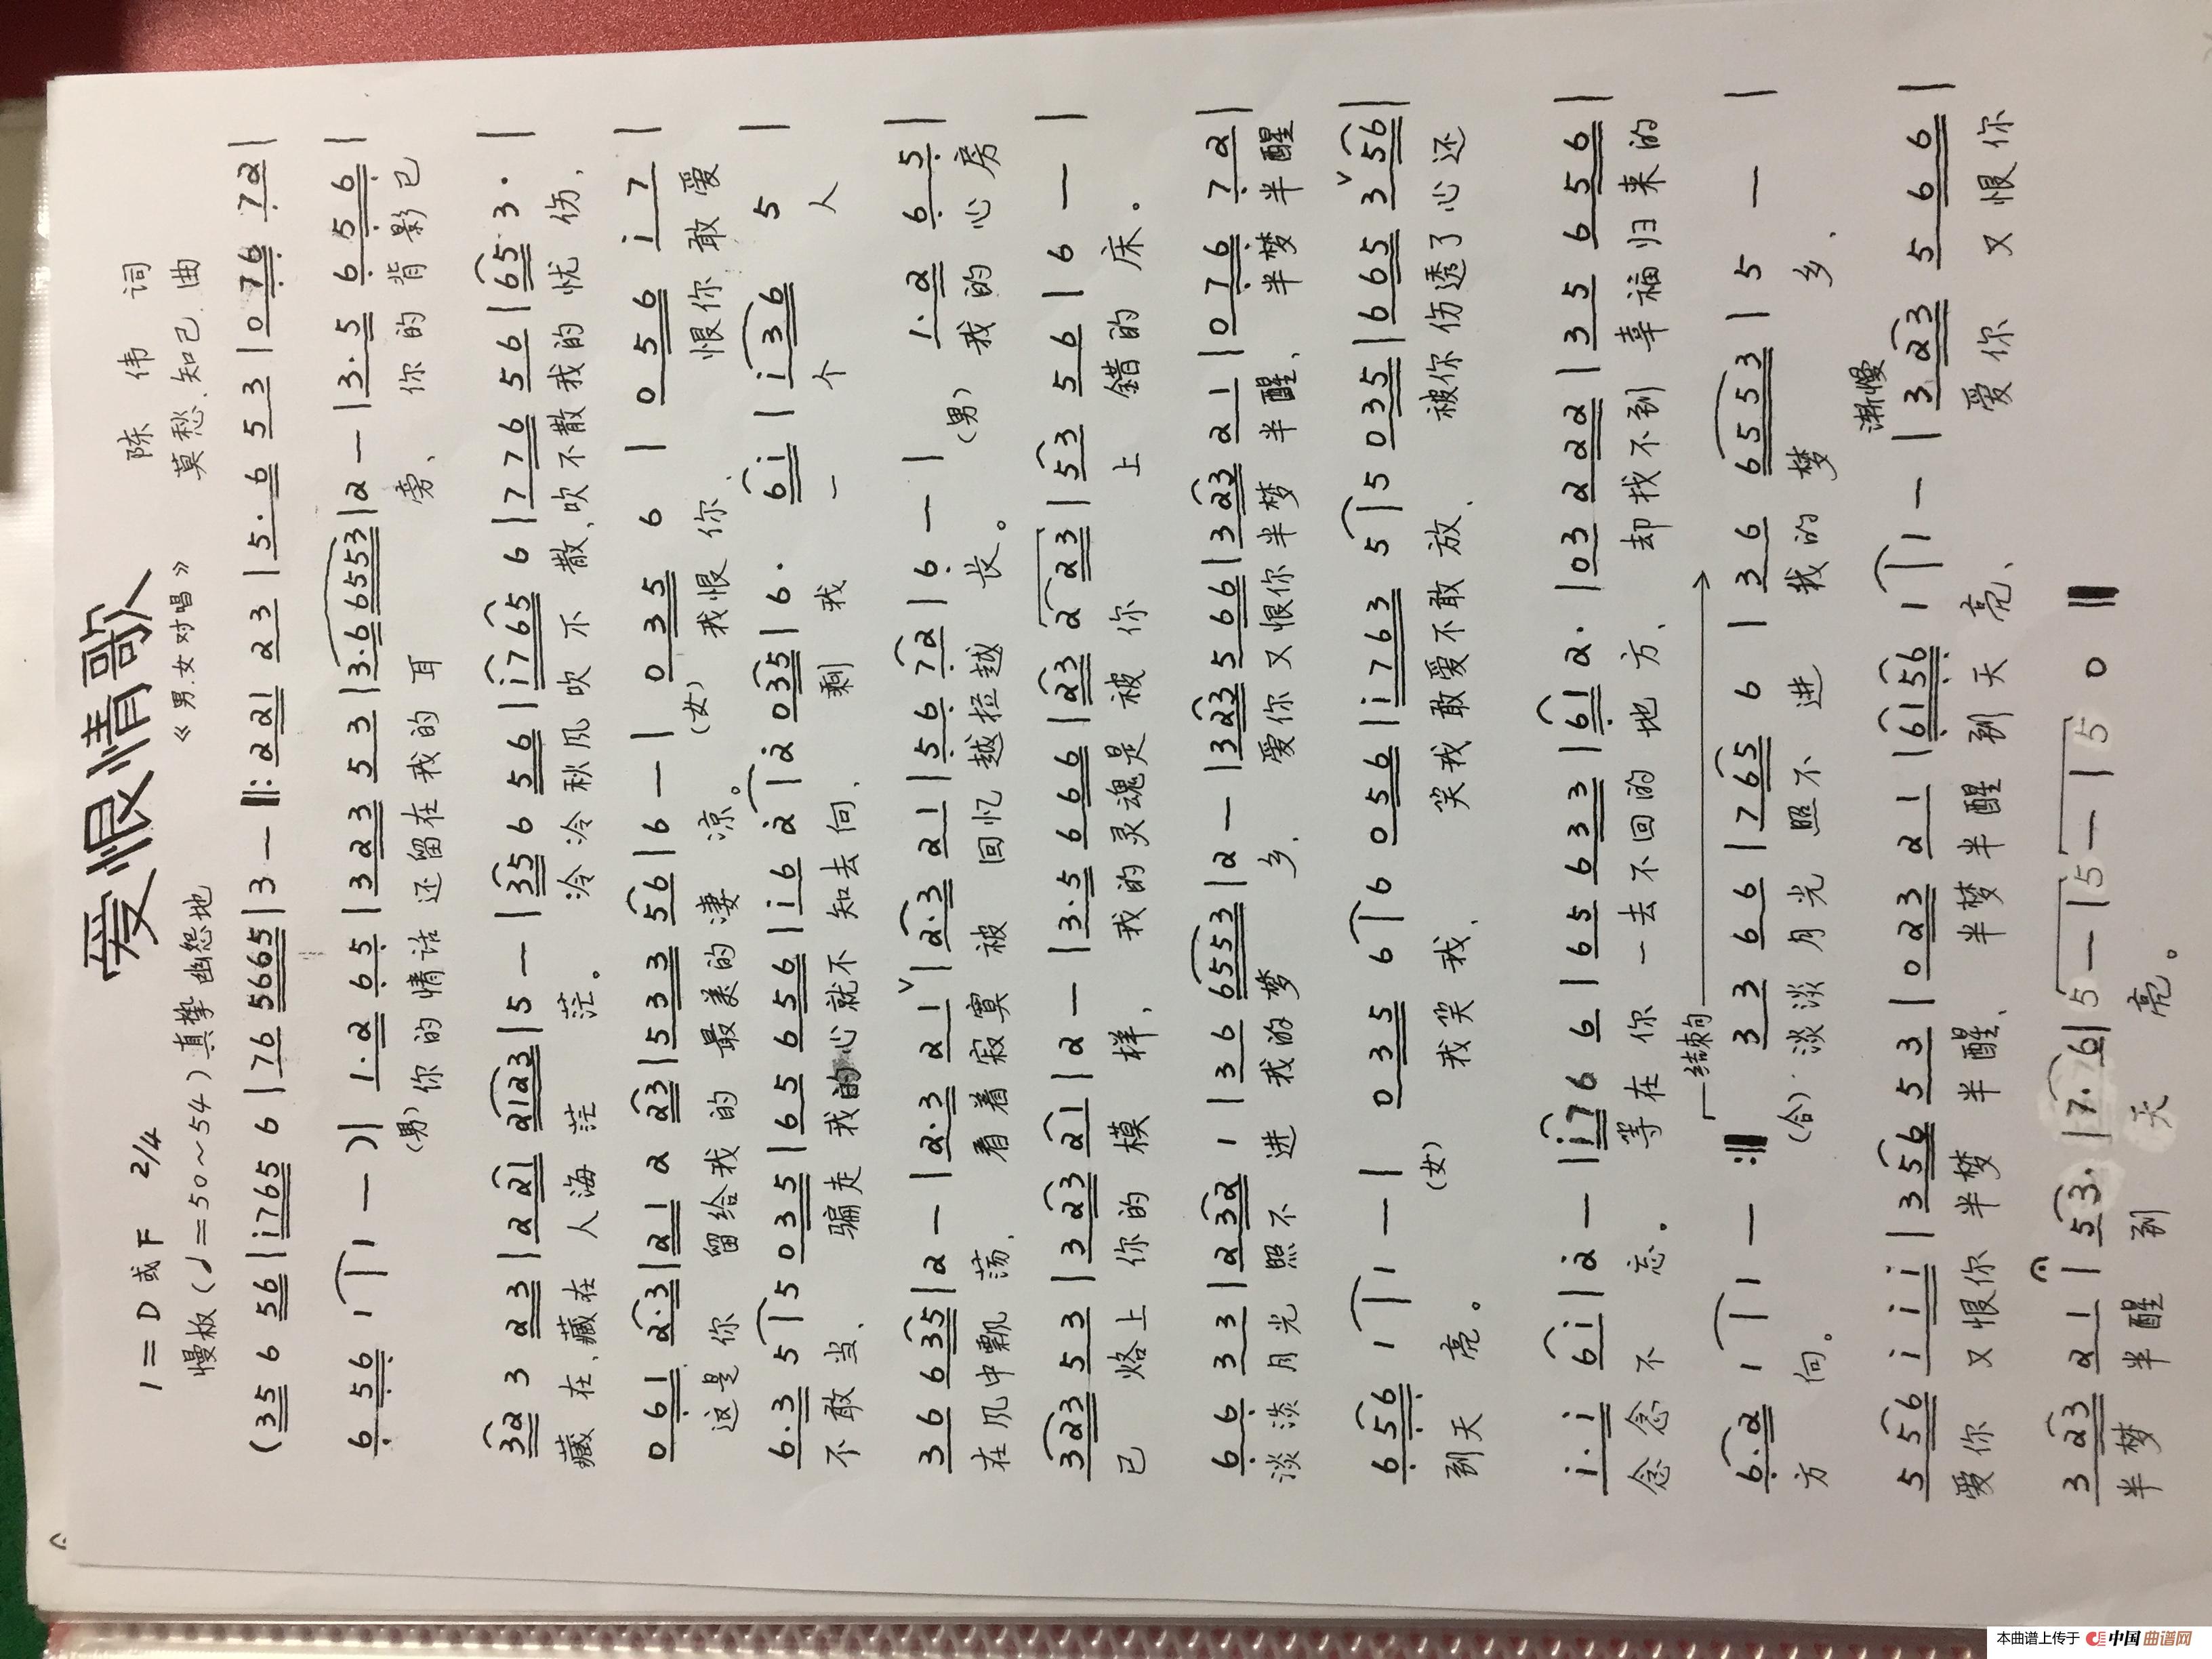 爱恨情歌
《男.女对唱》
1=D或F 2/4
陈伟 词
慢板(♩=50~54)真挚 幽怨地
莫愁、知己、曲
(35 6 56 | i765 6 | 76 5665 | 3 — ‖: 221 23 | 5·6 53 | 0 76 72 |
6 56 1 | 1 — )| 1·2 65 | 323 53 | 3·6 6553 | 2 — | 3·5 6 56 |
(男)你的情话 还留在我的 耳 旁、 你的背影已
32 3 23 | 2 21 2123 | 5 — | 35 6 56 | i765 6 | 776 56 | 65 3· |
藏在、藏在 人海 茫 茫。 冷冷秋风吹不 散、吹不散我的忧 伤,
0 61 2·3 | 21 2 23 | 533 56 | 6 — | 0 35 6 | 0 56 i7 |
这是你 留给我的 最美的凄 凉。 (女)我恨你、 恨你敢爱
6·3 5 | 5 035 | 65 656 | i6 2 | 2 035 | 6· 6i | i36 5 |
不敢当、 骗走我的心就不 知去向、 剩 我 一 个 人
36 635 | 2 — | 2·3 21 | 2·3 21 | 56 72 | 6 — | 1·2 65 |
在风中飘 荡、 看着寂寞 被 回忆 越拉越 长。 (男)我的心房
323 53 | 323 21 | 2 — | 3·5 666 | 23 2 23 | 53 56 | 6 — |
已 烙上 你的模 样, 我的灵魂是被你 上 错的 床。
66 33 | 232 1 | 36 6553 | 2 — | 323 566 | 323 21 | 0 76 72 |
淡淡月光 照不 进 我的梦 乡, 爱你又恨你半梦 半醒、 半梦半醒
6 56 1 | 1 — | 0 35 6 | 6 056 | i763 5 | 5 035 | 665 3 56 |
到天 亮。 (女) 我笑我、 笑我敢爱不敢放、 被你伤透了心还
i·i 6i | 2 — | i76 6 | 65 633 | 61 2· | 03 222 | 35 656 |
念念不 忘. 等在你 一去不回的 地方、 却找不到 幸福归来的
结束句
6·2 1 | 1 — :‖ 33 66 | 765 6 | 36 6553 | 5 — |
方 向。 (合)淡淡月光 照不 进 我的 梦 乡、
渐慢
5 56 i ii | 356 53 | 023 21 | 6156 1 | 1 — | 323 566 |
爱你 又恨你 半梦 半醒、 半梦半醒到天 亮、 爱你 又恨你
323 21 | 53· | 7·6 | 5 — | 5 — | 5 0 ‖
半梦 半醒 到 天 亮。
本曲谱上传于 中国曲谱网